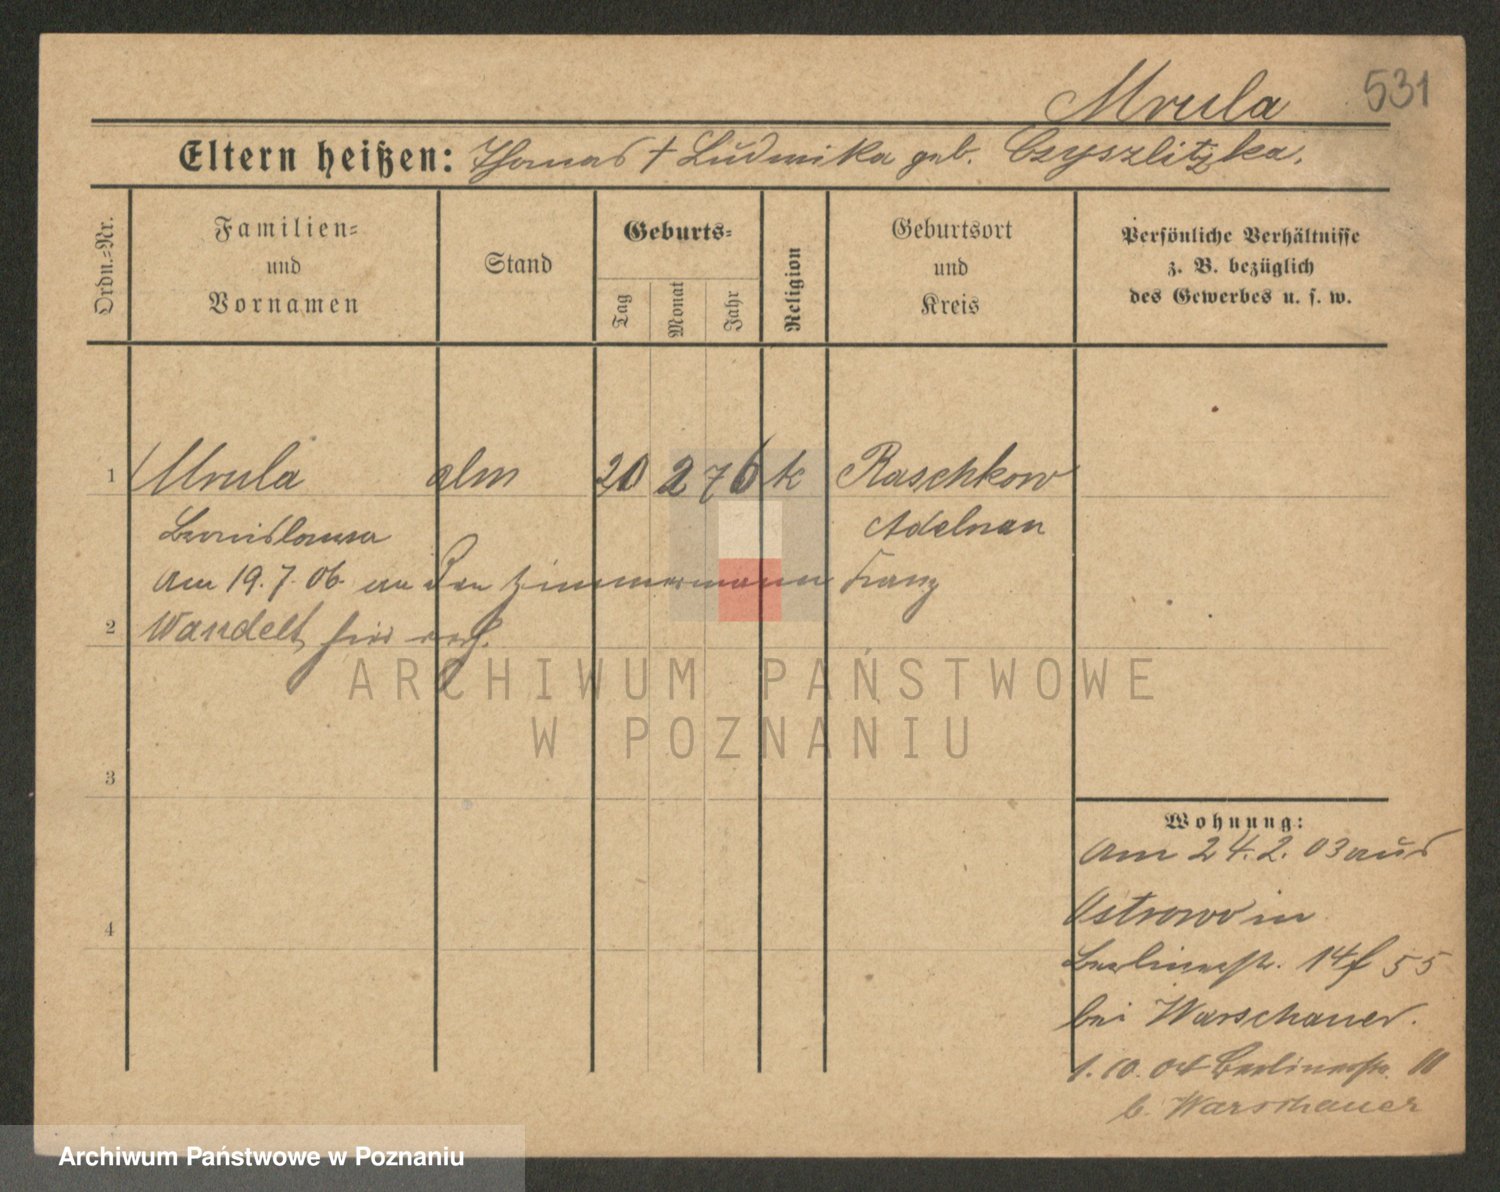 Mrula
531
Eltern heißen: Thomas † Ludwika geb. Czyszlitzka.
Ordn.-Nr.
Familien- und Vornamen
Stand
Geburts-
Tag
Monat
Jahr
Religion
Geburtsort und Kreis
Persönliche Verhältnisse
z. B. bezüglich
des Gewerbes u. s. w.
1 Mrula 20 2 76 k Raschkow
Bronislawa Adelnau
am 19.7.06 an den Zimmermann Franz
2 Wandelt hier verh.
ARCHIWUM PAŃSTWOWE
W POZNANIU
3
Wohnung:
Am 24.2.03 aus
4 Ostrowo in
Berlinerstr. 14f 55
bei Warschauer.
1.10.04 Berlinerstr. 11
b. Warschauer
Archiwum Państwowe w Poznaniu